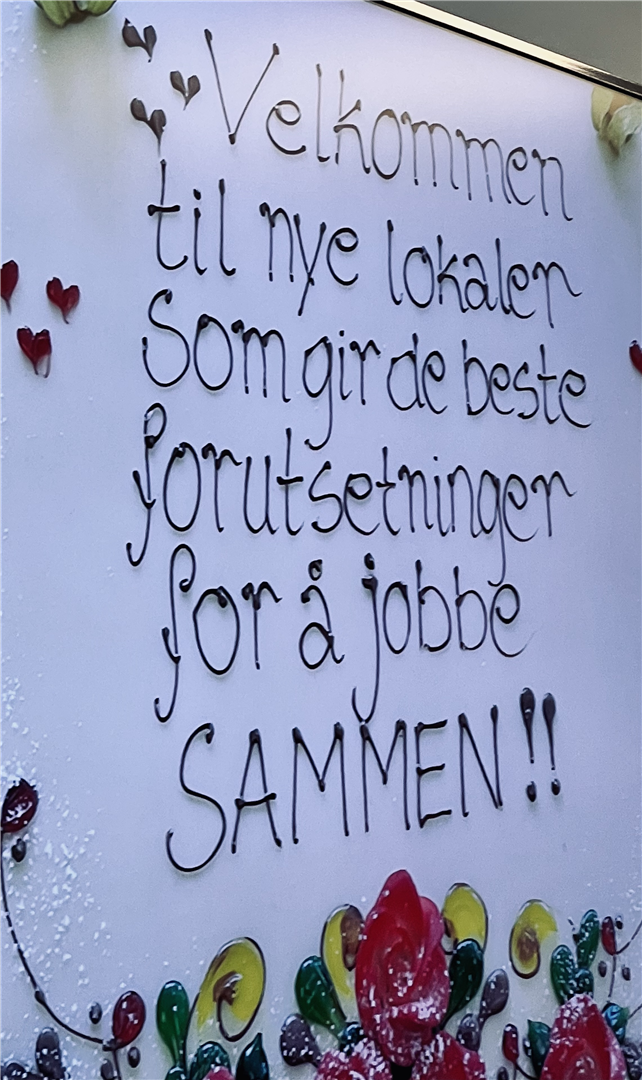 Velkommen
til nye lokaler
Som gir de beste
forutsetninger
for å jobbe
SAMMEN!!